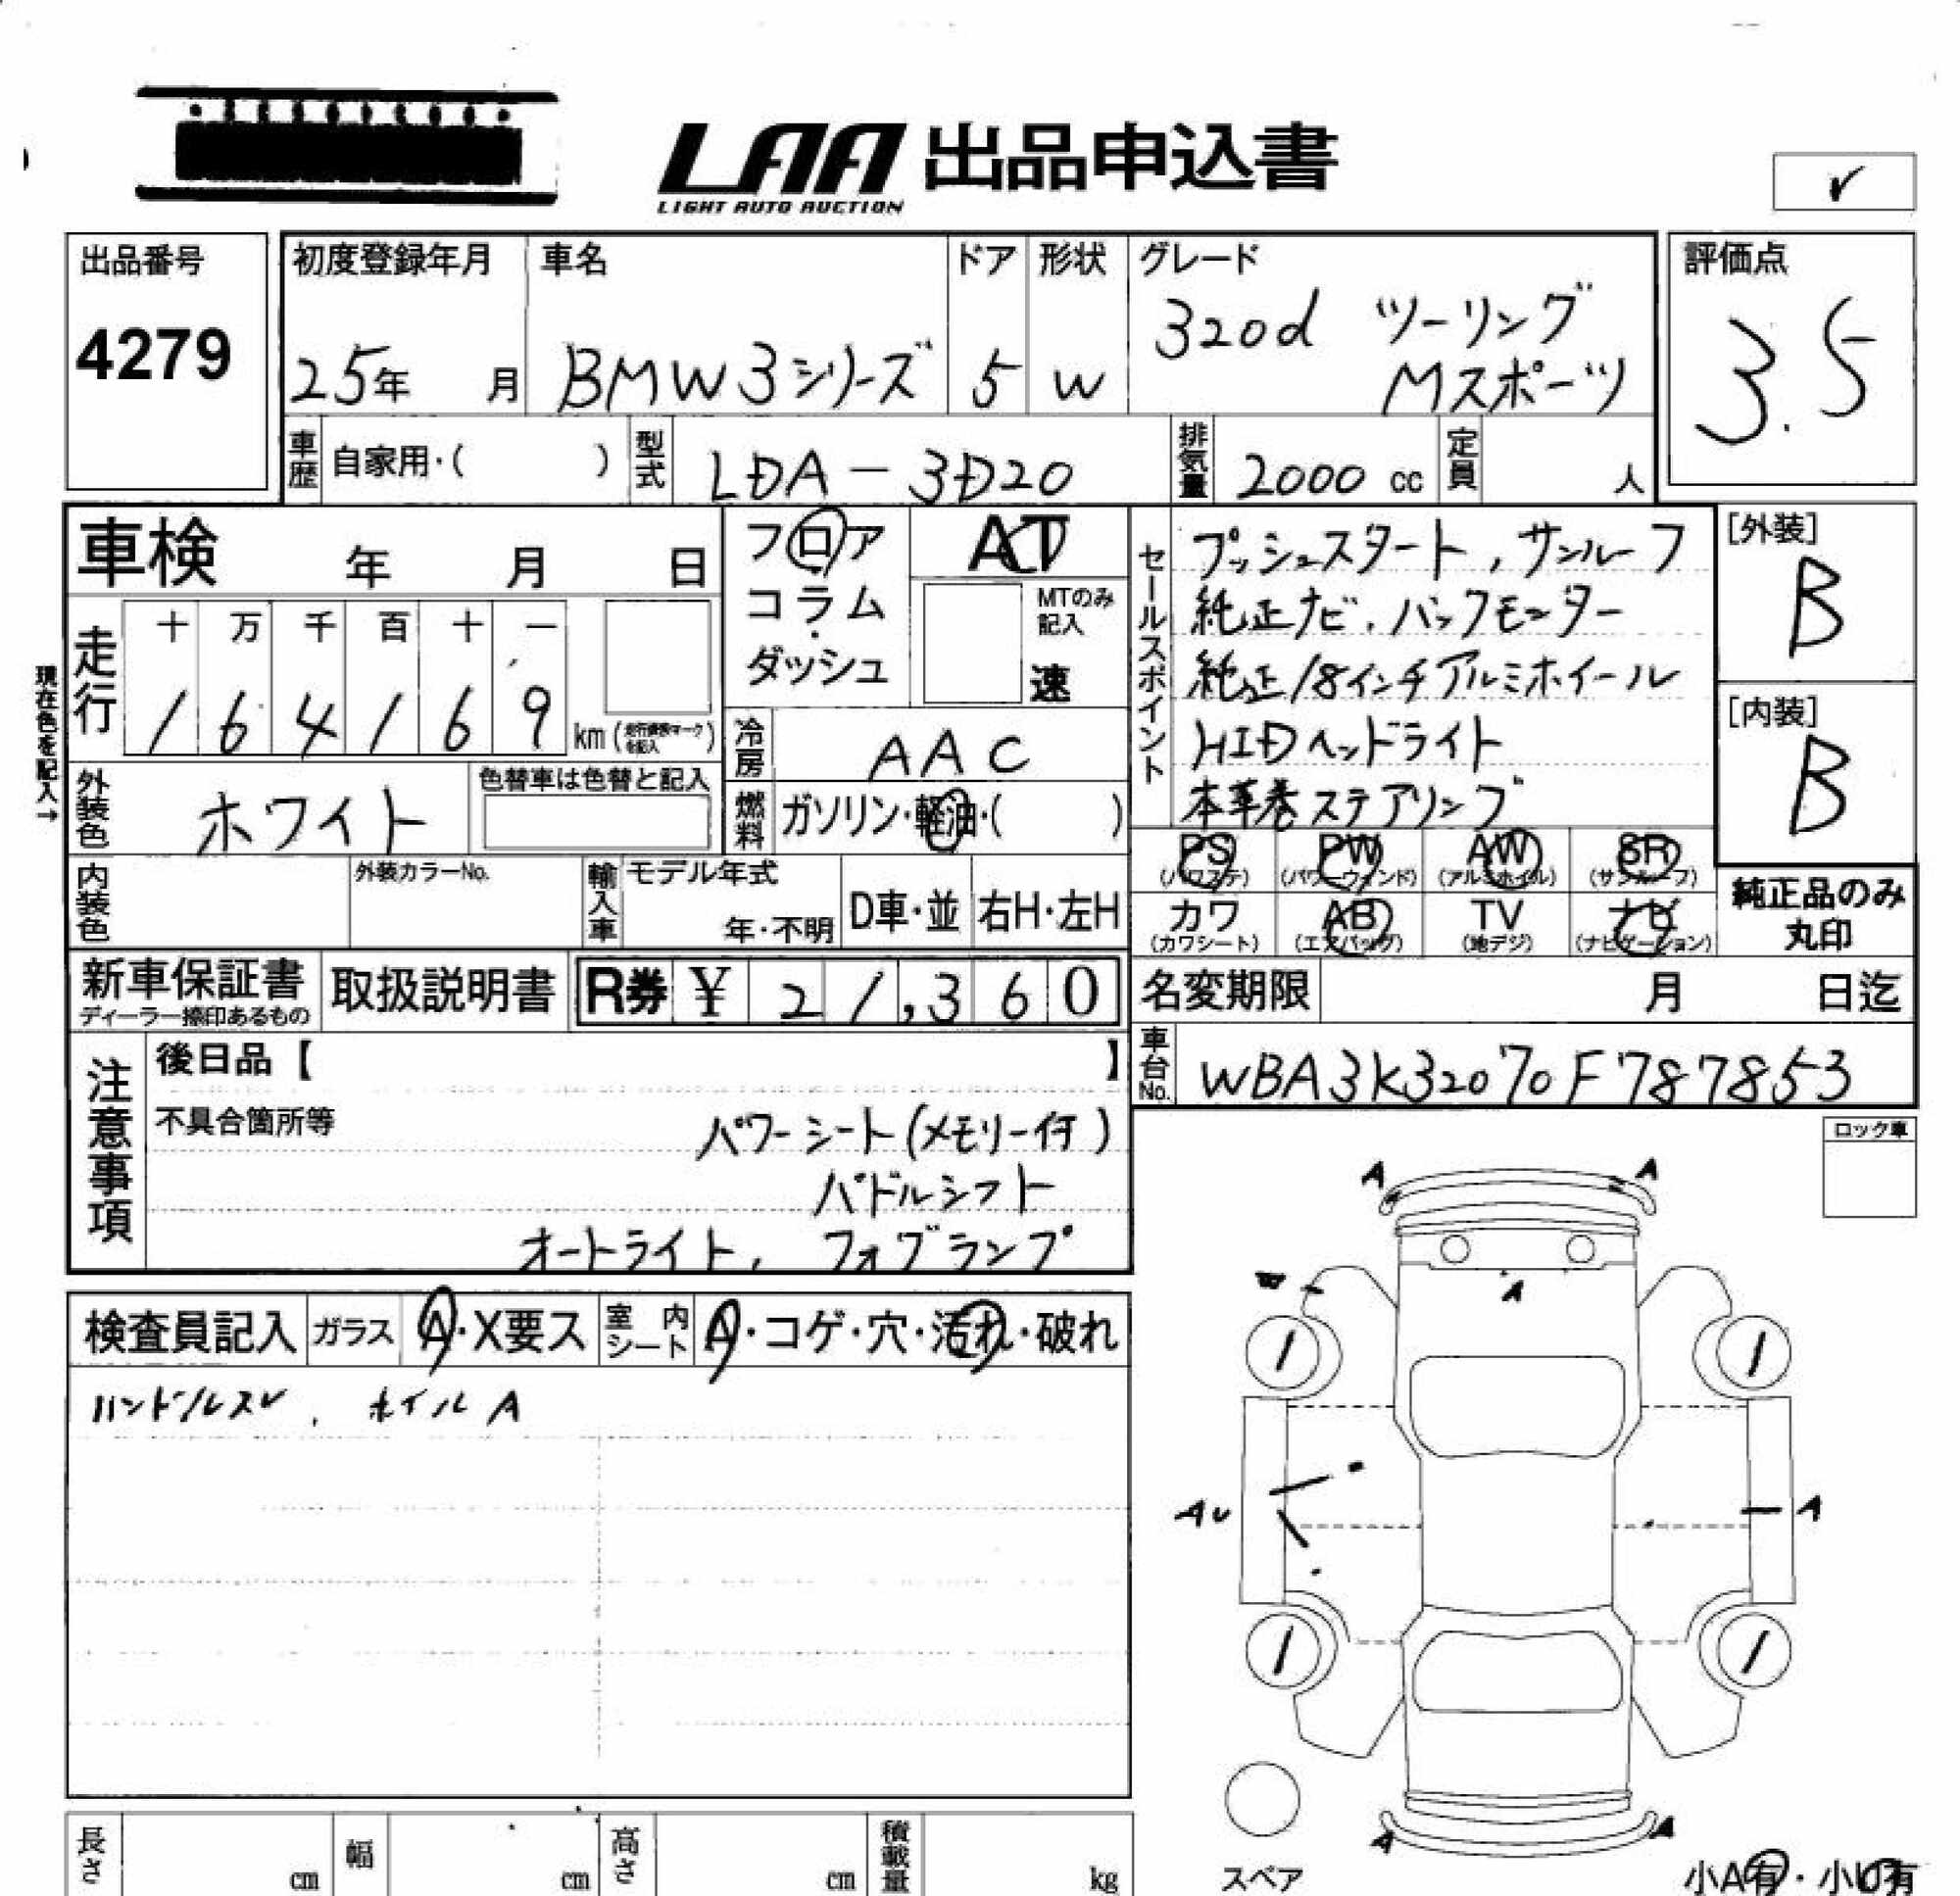 LAA 出品申込書
LIGHT AUTO AUCTION
✓
出品番号
4279
初度登録年月
25年 月
車名
BMW3シリーズ
ドア
5
形状
W
グレード
320d ツーリング
Mスポーツ
評価点
3.5
車歴 自家用・( )
型式 LDA-3D20
排気量 2000 cc
定員 人
車検 年 月 日
フロア
コラム
ダッシュ
AT
MTのみ
記入
速
セールスポイント
プッシュスタート,サンルーフ
純正ナビ,バックモニター
純正18インチアルミホイール
HIDヘッドライト
本革巻ステアリング
[外装]
B
[内装]
B
現在色を記入→
走行
十 万 千 百 十 一
1 6 4 1 6 9 km
冷房 AAC
外装色 ホワイト
色替車は色替と記入
燃料 ガソリン・軽油・( )
PS PW AW SR
(パワステ) (パワーウィンド) (アルミホイル) (サンルーフ)
カワ AB TV ナビ
(カワシート) (エアバッグ) (地デジ) (ナビゲーション)
純正品のみ
丸印
内装色
外装カラーNo.
輸入車
モデル年式
年・不明
D車・並
右H・左H
新車保証書
ディーラー捺印あるもの
取扱説明書
R券 ¥ 21,360
名変期限 月 日迄
車台No. WBA3K32070F787853
注意事項
後日品【 】
不具合箇所等
パワーシート(メモリー付)
パドルシフト
オートライト, フォグランプ
ロック車
検査員記入
ガラス A・X要ス
室内シート A・コゲ・穴・汚れ・破れ
ハンドルスレ, ホイルA
A A
A
AU A
A A
スペア
小A有・小U有
長さ cm
幅 cm
高さ cm
積載量 kg